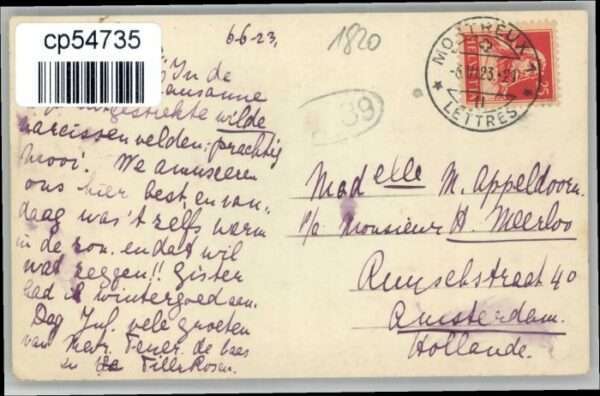 cp54735
6-6-23.
1820
39
"In de
Lausanne
uitgestrekte wilde
narcissenvelden; prachtig
mooi! We amuseeren
ons hier best, en van-
daag was 't zelfs warm
in de zon, en dat wil
wat zeggen!! Gister
had ik wintergoed aan.
Dag Juf. vele groeten
van Mevr. de baes
en Tilly Rosen.
MONTREUX 1
-6.VI.23.-21
II
LETTRES
HELVETIA
Madelle M. Appeldoorn.
p/a Monsieur H. Meerloo
Ruyschstraat 40
Amsterdam.
Hollande.